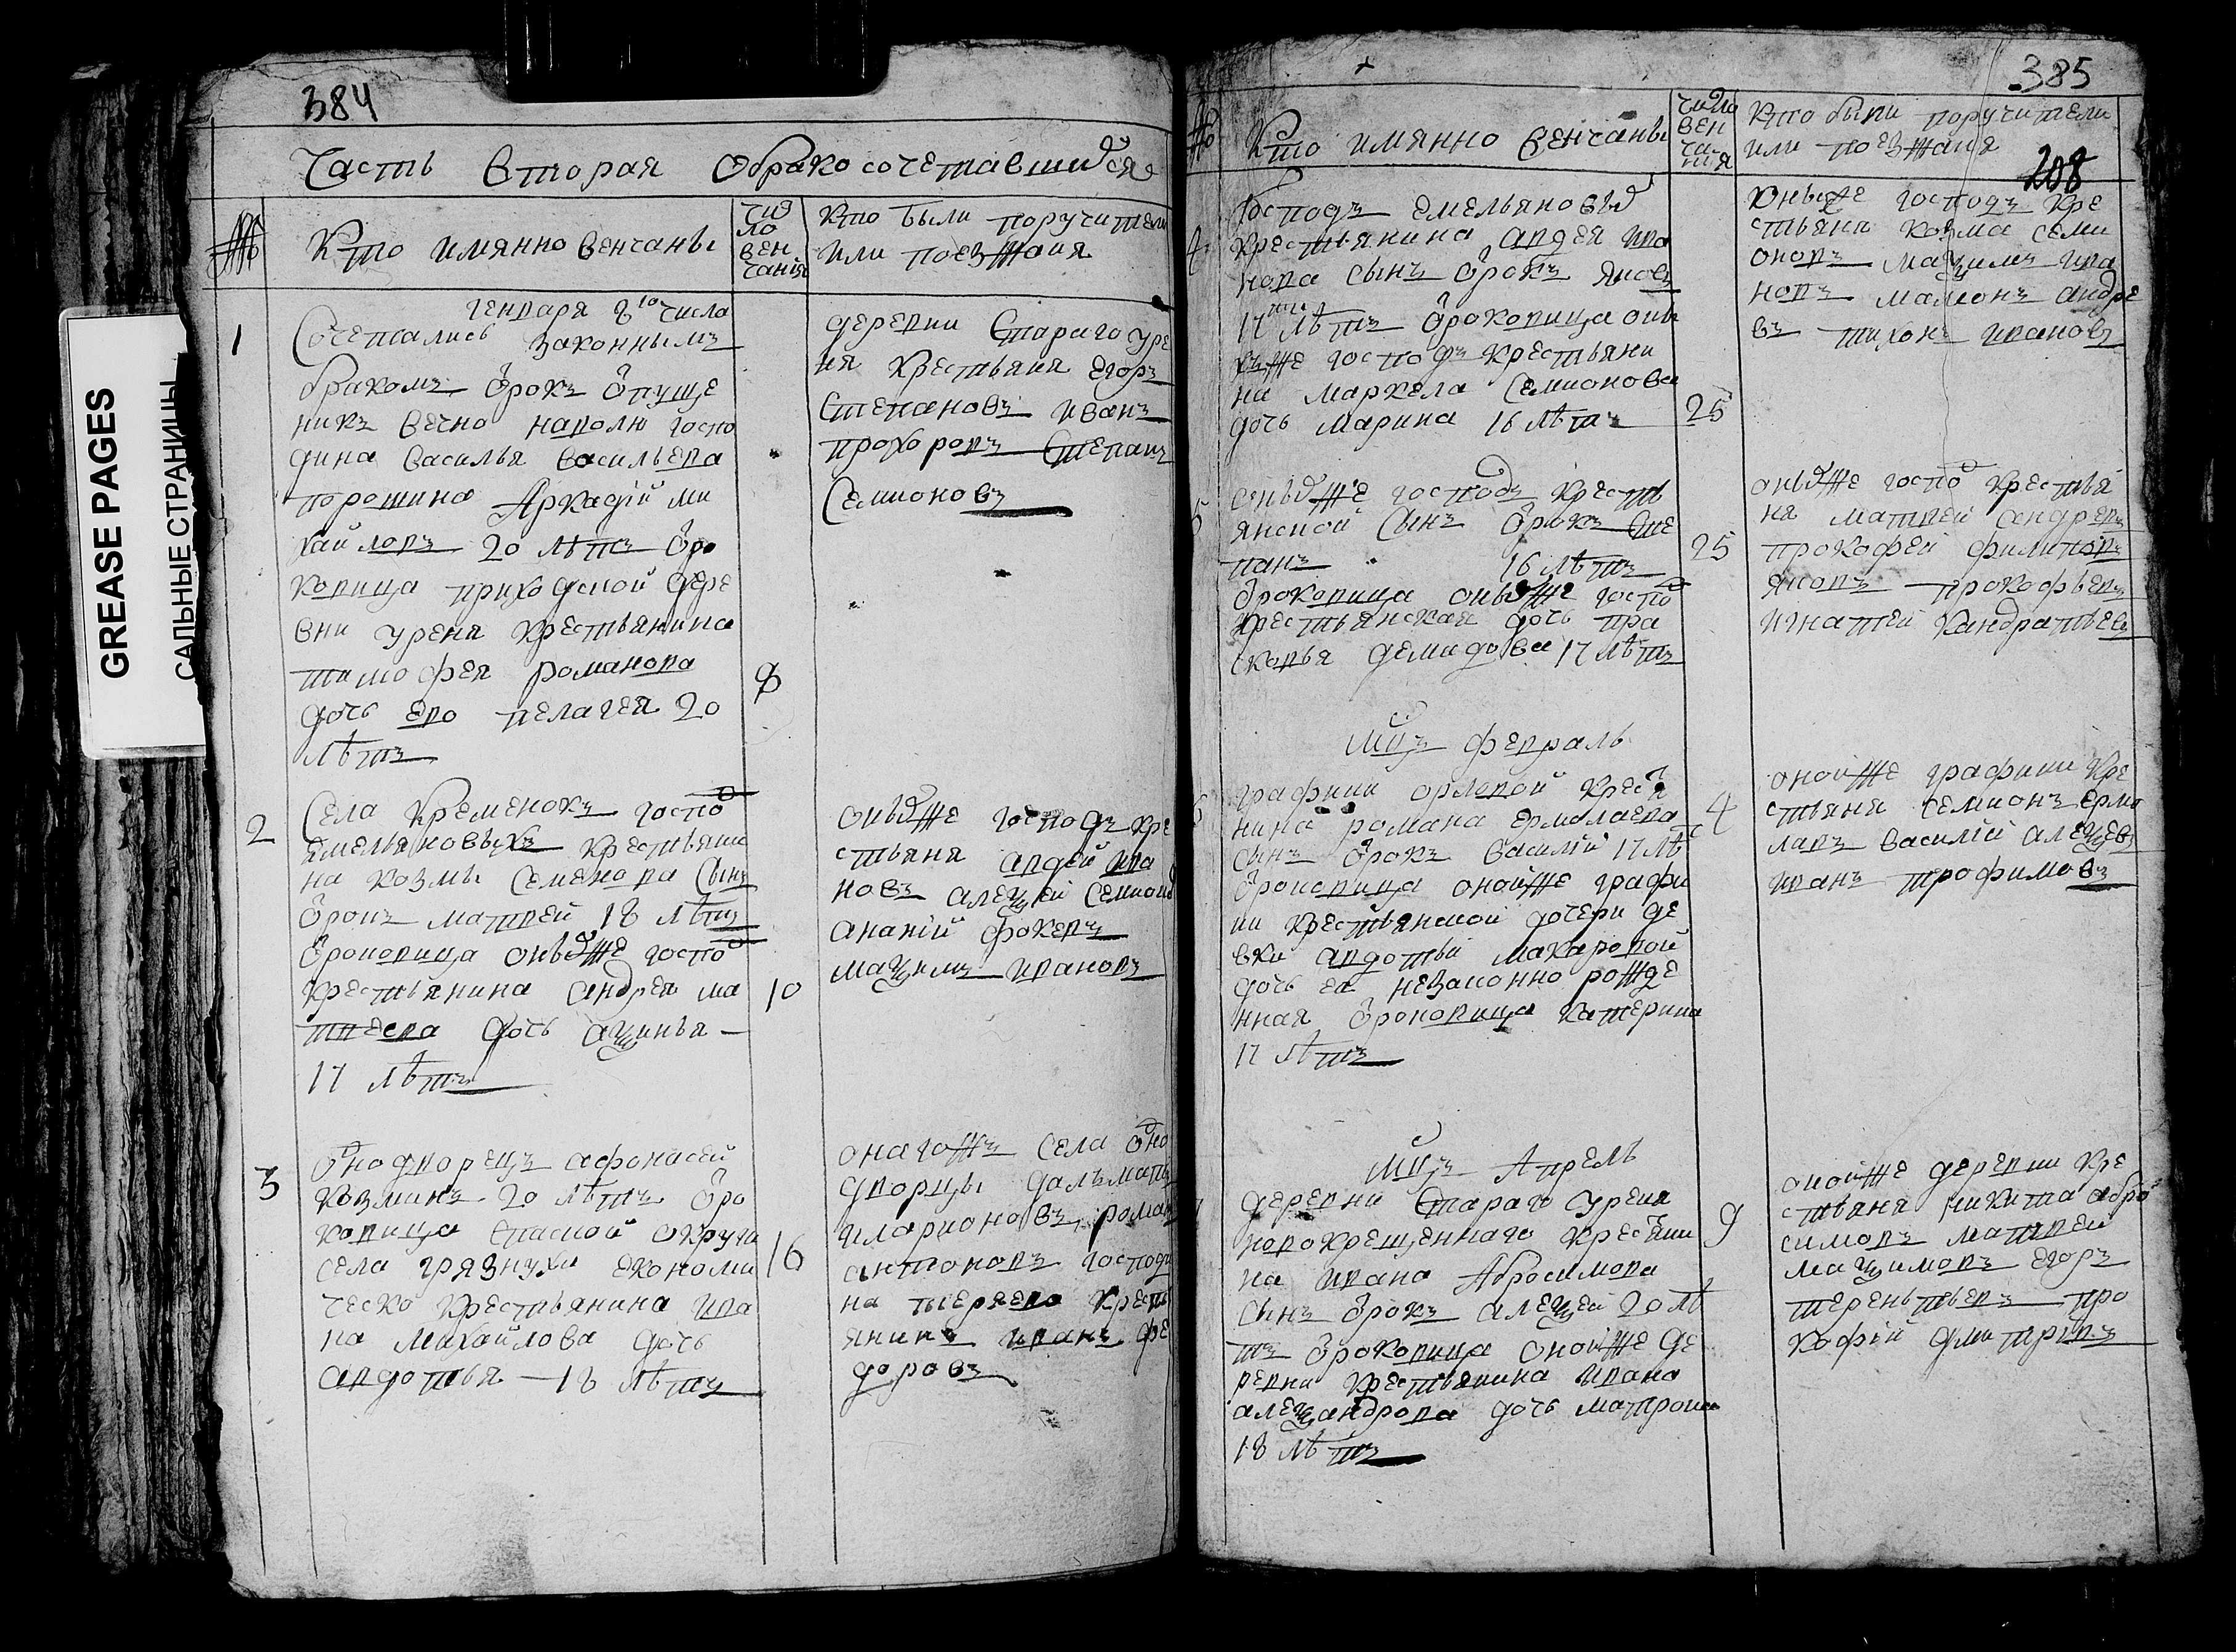 GREASE PAGES
САЛЬНЫЕ СТРАНИЦЫ
384
Часть вторая обракосочетавшихся
№
Кто имянно венчаны
чис
ло
вен
чанія
Кто были поручители
или поезжаня
генваря 8го числа
1
Сочетались законнымъ
бракомъ отрокъ отпуще
никъ вечно наволю госпо
дина василья васильева
порошина Аркадій ми
хайловъ 20 лѣтъ отро
ковица приходской дере
вни уреня крестьянина
тимофея романова
дочь ево пелагея 20
лѣтъ
8
деревни Стараго уре
ня крестьяня егоръ
Степановъ иванъ
прохоровъ Степанъ
Семионовъ
2
Села Кременокъ госпо
емельяновыхъ крестьяни
на козмы Семенова Сынъ
отрокъ матвей 18 лѣтъ
отроковица оныхже госпо
крестьянина андрея ма
твеева дочь аѯинья
17 лѣтъ
10
оныхже господъ кре
стьяня авдей ива
новъ алеѯей Семионо
ананій фокевъ
маѯимъ ивановъ
3
однодворецъ афонасей
козминъ 20 лѣтъ отро
ковица спаской округа
села грязнухи економи
ческо крестьянина ива
на михайлова дочь
авдотья 18 лѣтъ
16
онагожъ села одно
дворцы далматъ
иларионовъ, роман
антоновъ господи
на крестья
янинъ иванъ фе
доровъ
385
208
№
Кто имянно венчаны
число
вен
ча
нія
Кто были поручители
или поезжаня
4
Господъ емельяновыхъ
крестьянина авдея ива
нова сынъ отрокъ яковъ
17 лѣтъ отроковица оны
хъже господъ крестьяни
на маркела Семионова
дочь марина 16 лѣтъ
25
оныхже господъ кре
стьяня козма семи
оновъ маѯимъ ива
новъ мамонъ андре
въ тихонъ ивановъ
5
оныхже господъ кресть
янской сынъ отрокъ сте
панъ 16 лѣтъ
отроковица оныхже госпо
крестьянская дочь пра
сковья демидова 17 лѣтъ
25
оныхже госпо крестья
ня матвей андревъ
прокофей филиповъ
яковъ прокофьевъ
игнатей кандратьевъ
мцъ февраль
6
графини орловой крестя
нина романа ермолаева
сынъ отрокъ василій 17 лѣ
отроковица онойже графи
ни крестьянской дочери де
вки авдотьи макаровой
дочь ея незаконно рожде
нная отроковица катерина
17 лѣтъ
4
онойже графини кре
стьяня семионъ ермо
лавъ василій алеѯевъ
иванъ трофимовъ
мцъ Апрель
деревни Стараго уреня
новокрещеннаго крестяни
на ивана Абросимова
сынъ отрокъ алеѯей 20 лѣ
тъ отроковица онойже де
ревни крестьянина ивана
алеѯандрова дочь матрона
18 лѣтъ
9
онойже деревни кре
стьяня никита абро
симовъ матвей
маѯимовъ егоръ
терентьевъ про
кофій дмитріевъ